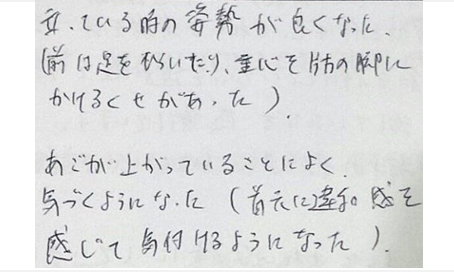 立っている時の姿勢が良くなった、
(前は足をひらいたり、重心を片方の脚に
かけるくせがあった)。
あごが上がっていることによく
気づくようになった(首元に違和感を
感じて気付けるようになった)。